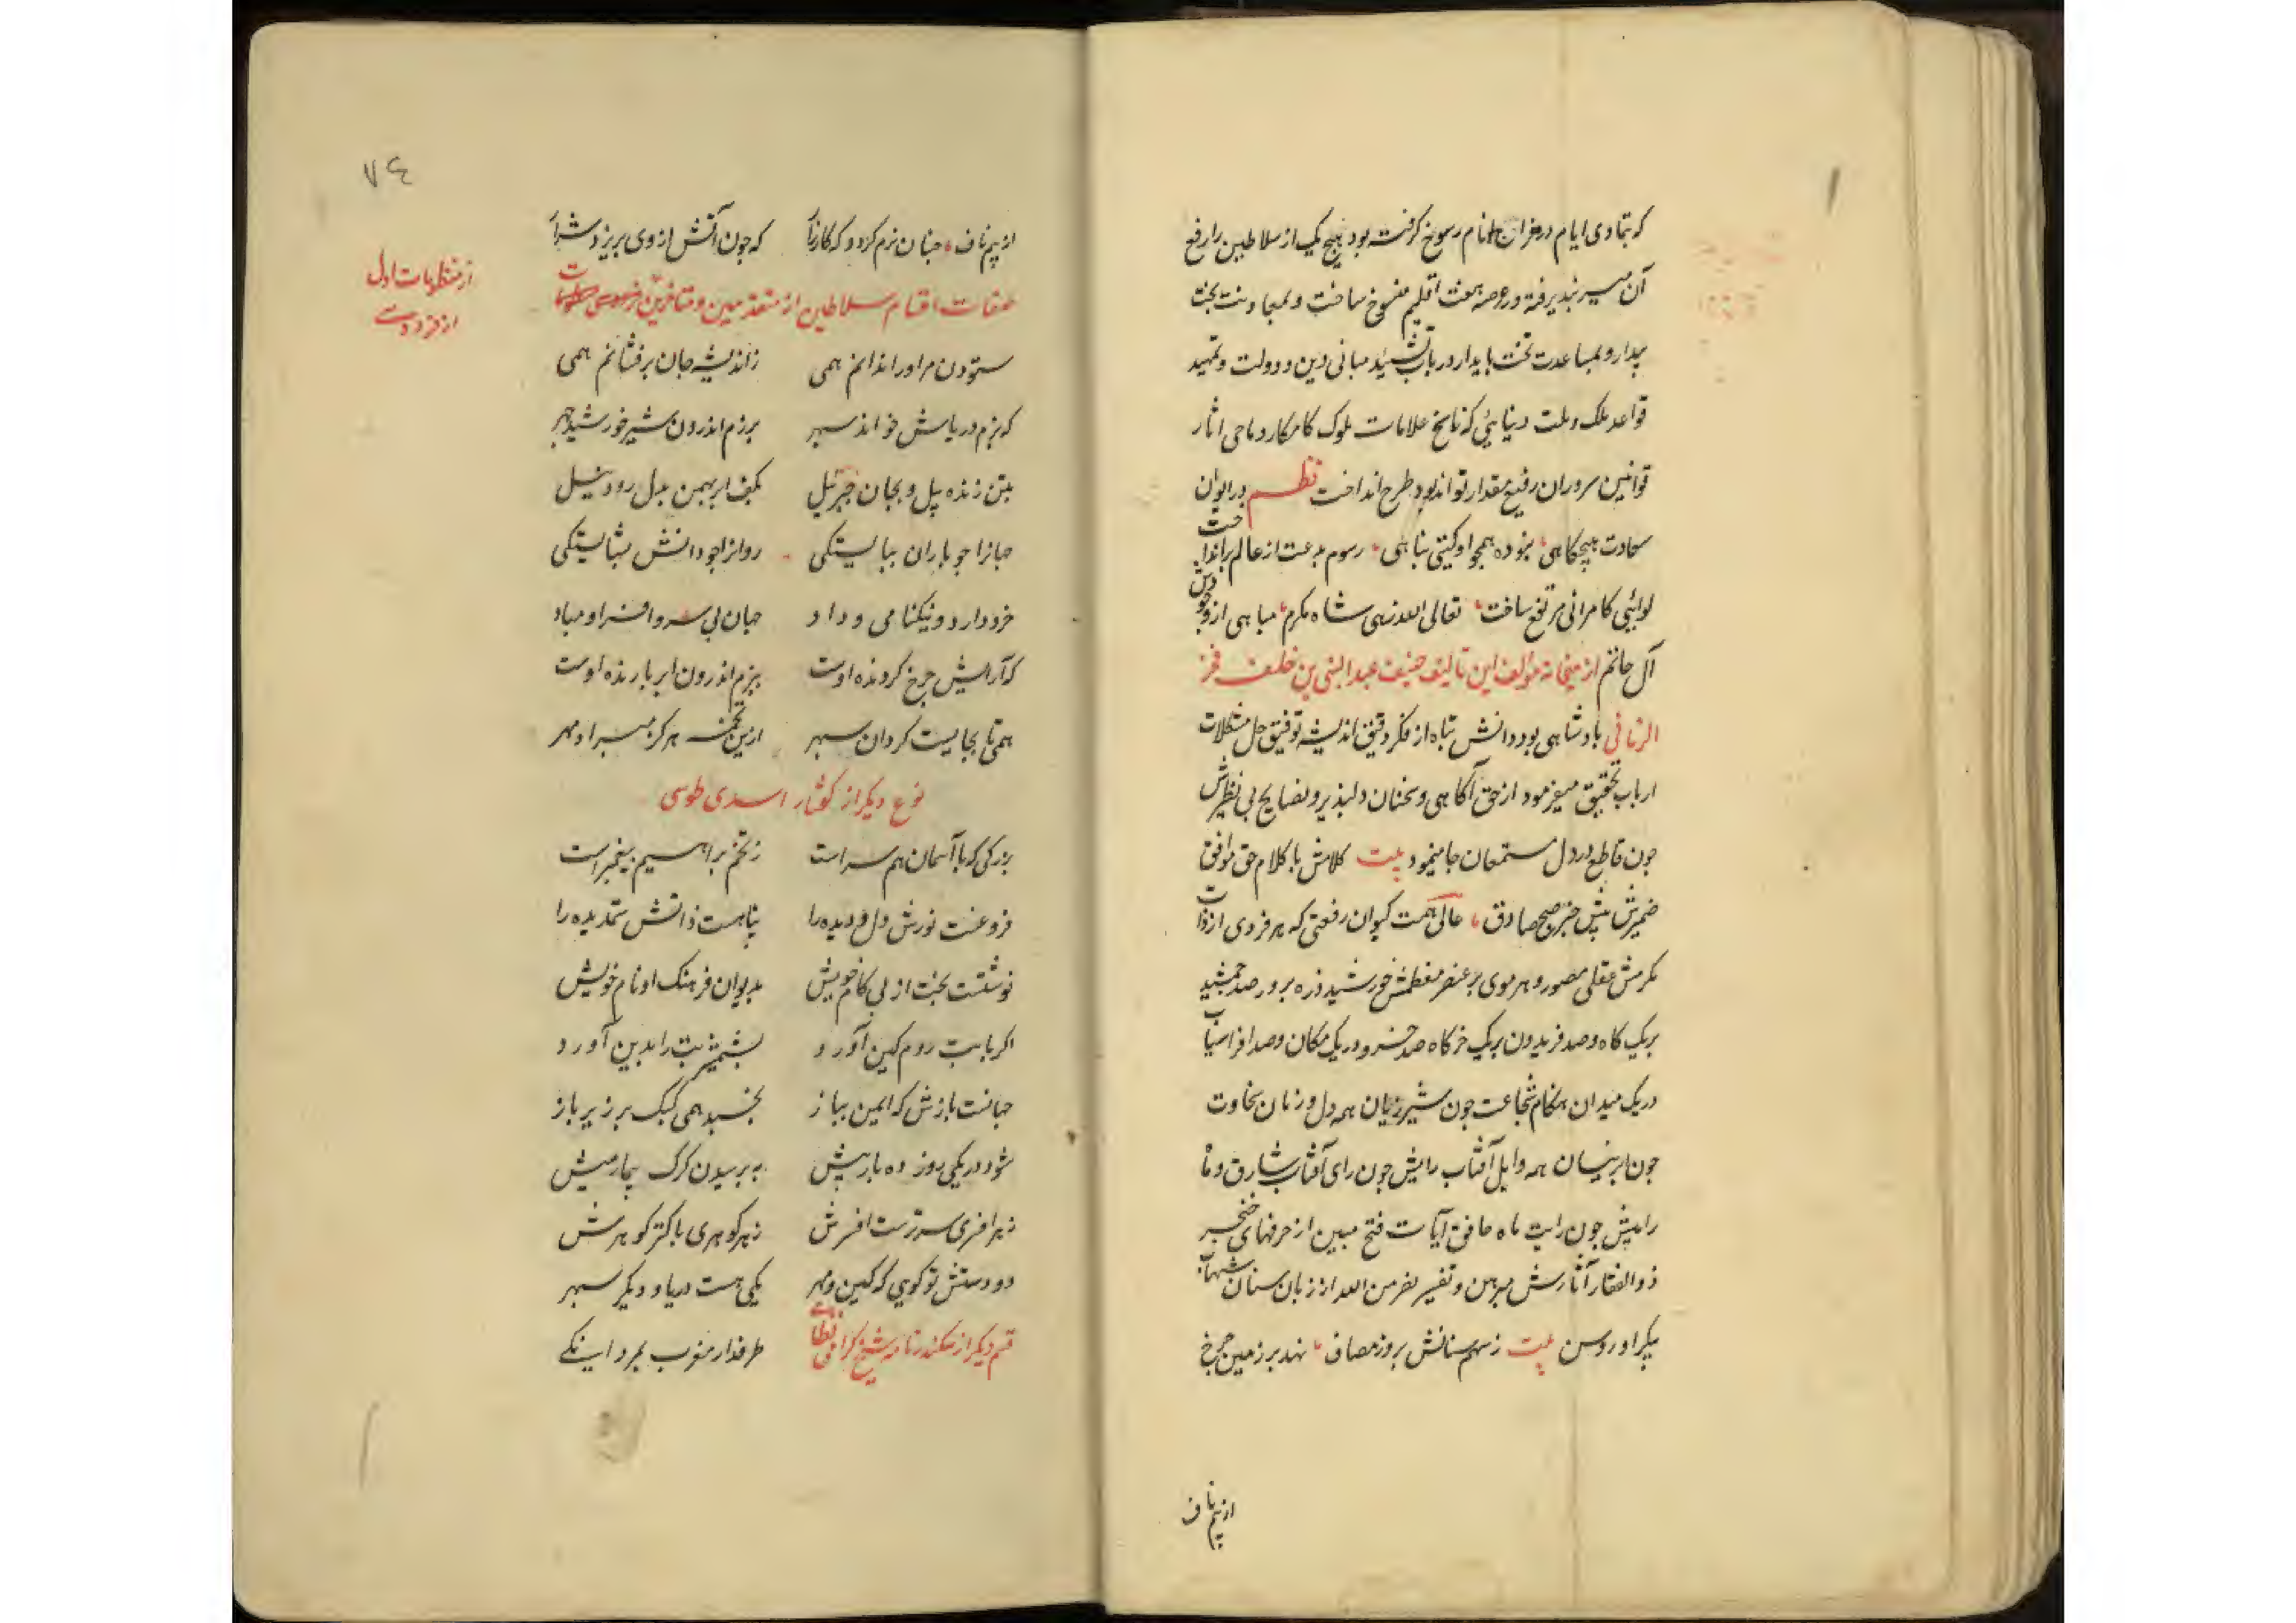 که بتمادی ایام در مزاج انام رسوخ گرفته بود هیچ یک از سلاطین را رفع
آن میسر نبذیرفته در عرصه هفت اقلیم مفسوخ ساخت و بمعاونت بخت
بیدار و بمساعدت تخت بایدار در باب تشیید مبانی دین و دولت و تمهید
قواعد ملک و ملت دنیائی که ناسخ علامات ملوک کامکار و ماحی اثار
قوانین سروران رفیع مقدار تواند بود طرح انداخت نظم در ایوان
سعادت هیچکاهی نبوده همجو او کیتی بناهی رسوم بدعت از عالم برانداخت
لوائی کامرانی مرتفع ساخت تعالی الله زهی شاه مکرم مباهی از وجودش
آل حاتم از میخانه مؤلف این تالیف ضعیف عبدالنبی بن خلف فخر
الزمانی بادشاهی بود دانش بناه از فکر دقیق اندیشه توفیق حل مشکلات
ارباب تحقیق میفرمود از حق آکاهی و سخنان دلبذیر و نصایح بی نظیرش
جون قاطع در دل مستمعان جا مینمود بیت کلامش با کلام حق موافق
ضمیرش بیش خیز صبح صادق عالی همت کیوان رفعتی که هر فردی از ذات
مکرمش عقلی مصور و هر موی بر عنصر معظمش خورشید ذره برور صد جمشید
بریک کاه و صد فریدون بریک خرکاه صد خسرو در یک مکان و صد افراسیاب
در یک میدان هنکام شجاعت جون شیر ژیان همه دل و زمان سخاوت
جون ابر نیسان همه وابل آفتاب رایش جون رای آفتاب شارق و ماه
رایتش جون رایت ماه خافق آیات فتح مبین از حرفهای خنجر
ذوالفقار آثارش مبرهن و تفسیر نصر من الله از زبان سنان شهاب
بیکر او روسن بیت ز سهم سنانش بروز مصاف نهد بر زمین جرخ
از بیم ناف
٧٤
از بیم ناف جنان نرم کردد که کارزار که جون آتش از وی بریزد شرار
صفات اقسام سلاطین از متقدمین و متاخرین
از منظومات اول
از فردوسی
ستودن مر اورا ندانم همی زاندیشه جان برفشانم همی
که بزم دریاش خواند سبهر برزم اندرون شیر خورشید جهر
بتن زنده بیل و بجان جبرئیل بکف ابر بهمن بدل رود نیل
جهانرا جو باران ببایستکی روانرا جو دانش بشایستکی
خرد دارد و نیکنامی و داد جهان بی سر و افسر او مباد
که آرایش جرخ کردنده اوست ببزم اندرون ابر بارنده اوست
همی تا بجایست کردان سبهر ازین تخمه هرکز مبراد مهر
نوع دیکر از کفتار اسدی طوسی
بزرکی که با آسمان هم سراست ز تخم براهیم بیغمبراست
فروغست نورش دل و دیده را بناهست ذاتش ستمدیده را
نوشتست بخت از بی کام خویش بدیوان فرهنک او نام خویش
اکر بابت روم کین آورد بشمشیر بت را بدین آورد
جهانست بازش که ایمن بباز بخسبد همی کبک بر زیر باز
شود در یکی روز ده بار بیش به برسیدن کرک بیمار میش
ز هر افسری سرترست افسرش ز هر کوهری باکتر کوهرش
دو دستش تو کویی که کین و مهر یکی هست دریا و دیکر سبهر
قسم دیکر از سکندرنامه شیخ کرامی نظامی طرفدار مغرب بمردانکی